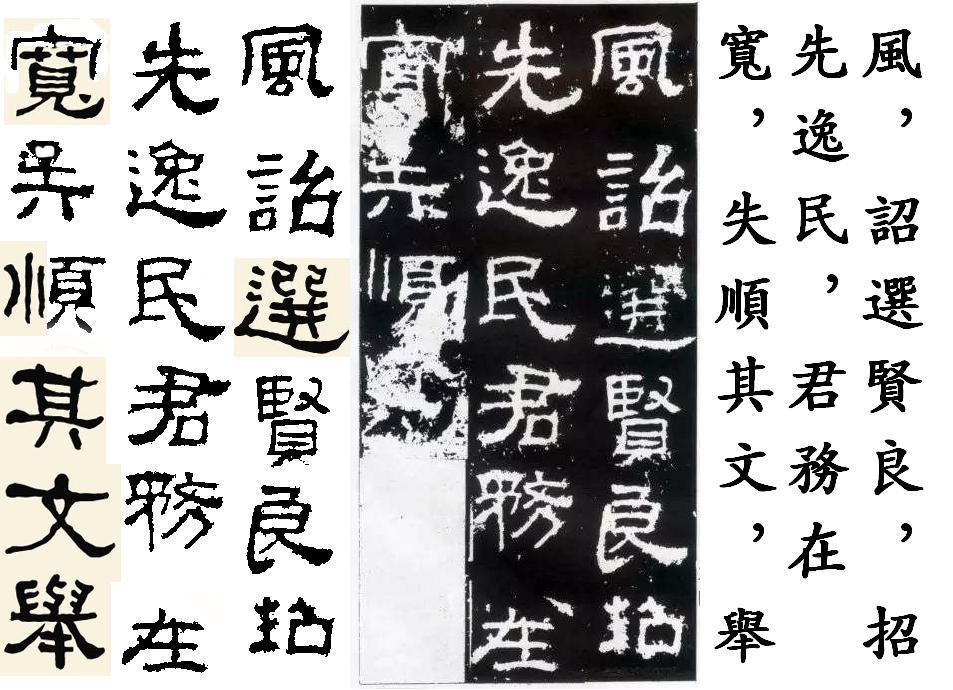 風，詔選賢良，招
先逸民，君務在
寬，失順其文，舉
風詔選賢良招
先逸民君務在
寬失順
風詔選賢良招
先逸民君務在
寬失順其文舉